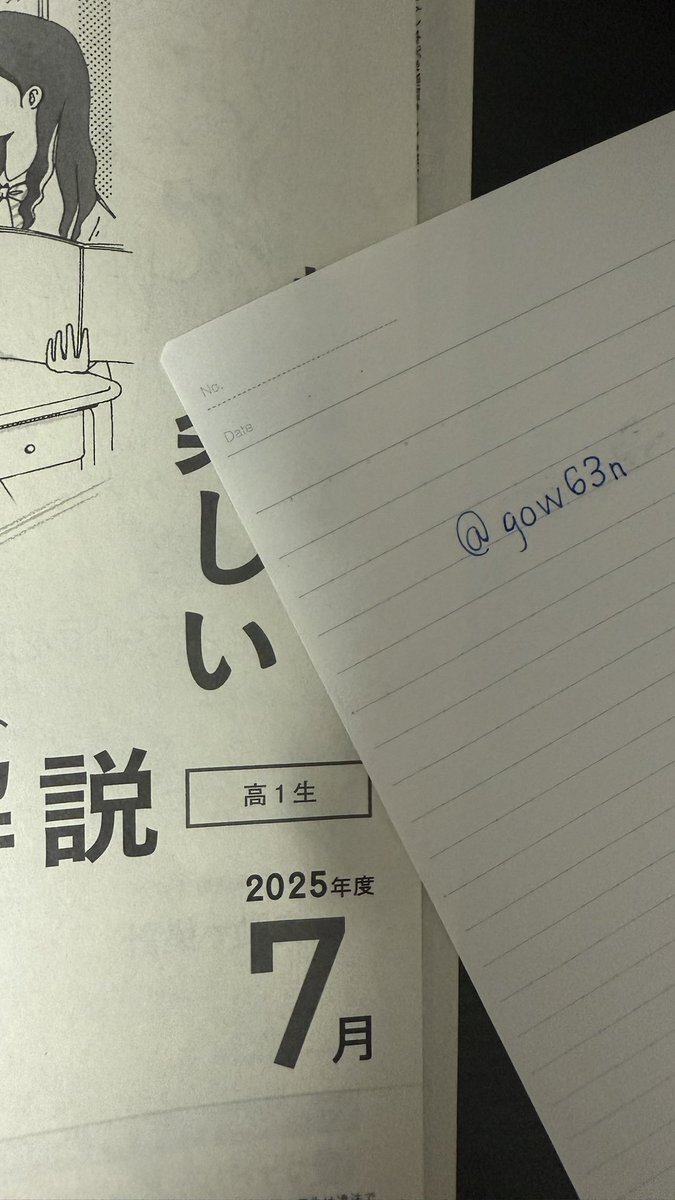 しい
解説
高1生
2025年度
7月
No.
Date
@gow63n